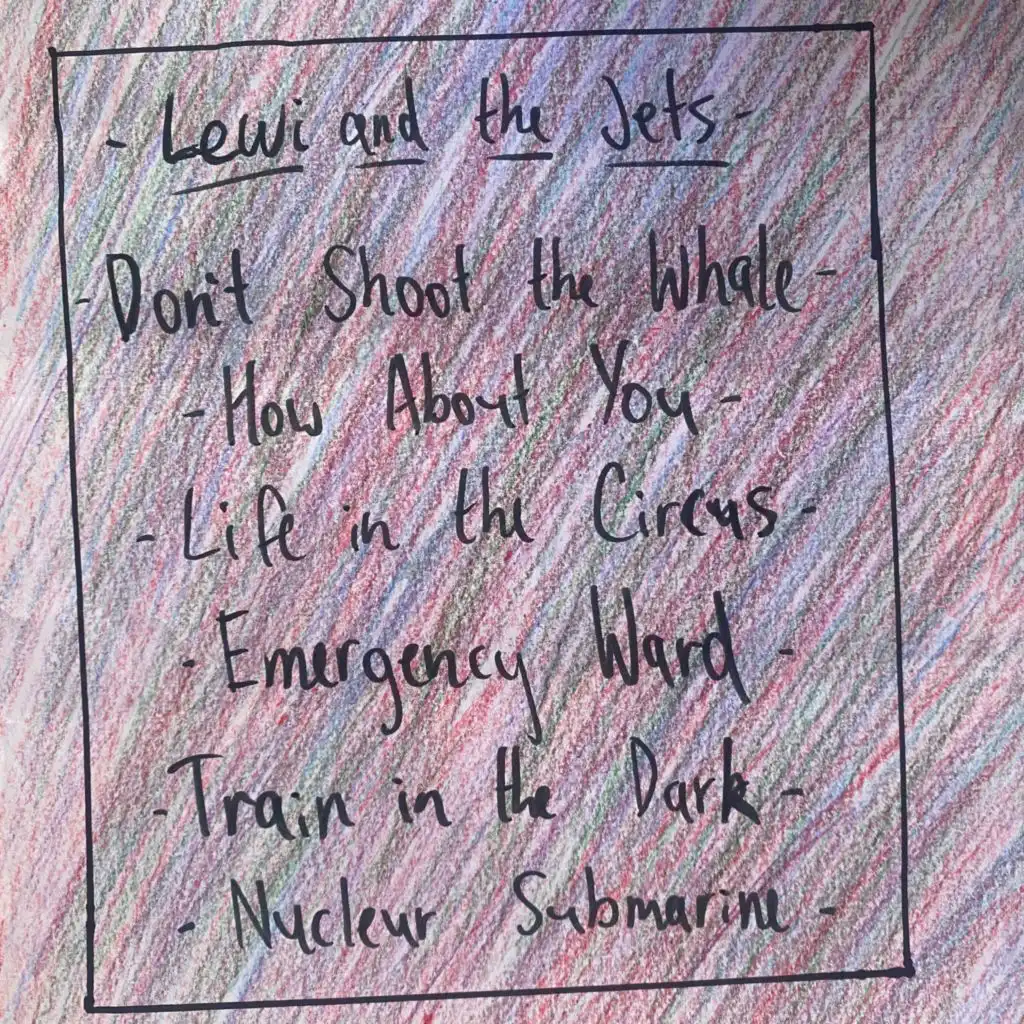 - Lewi and the Jets -
- Don't Shoot the Whale -
- How About You -
- Life in the Circus -
- Emergency Ward -
- Train in the Dark -
- Nucleur Submarine -